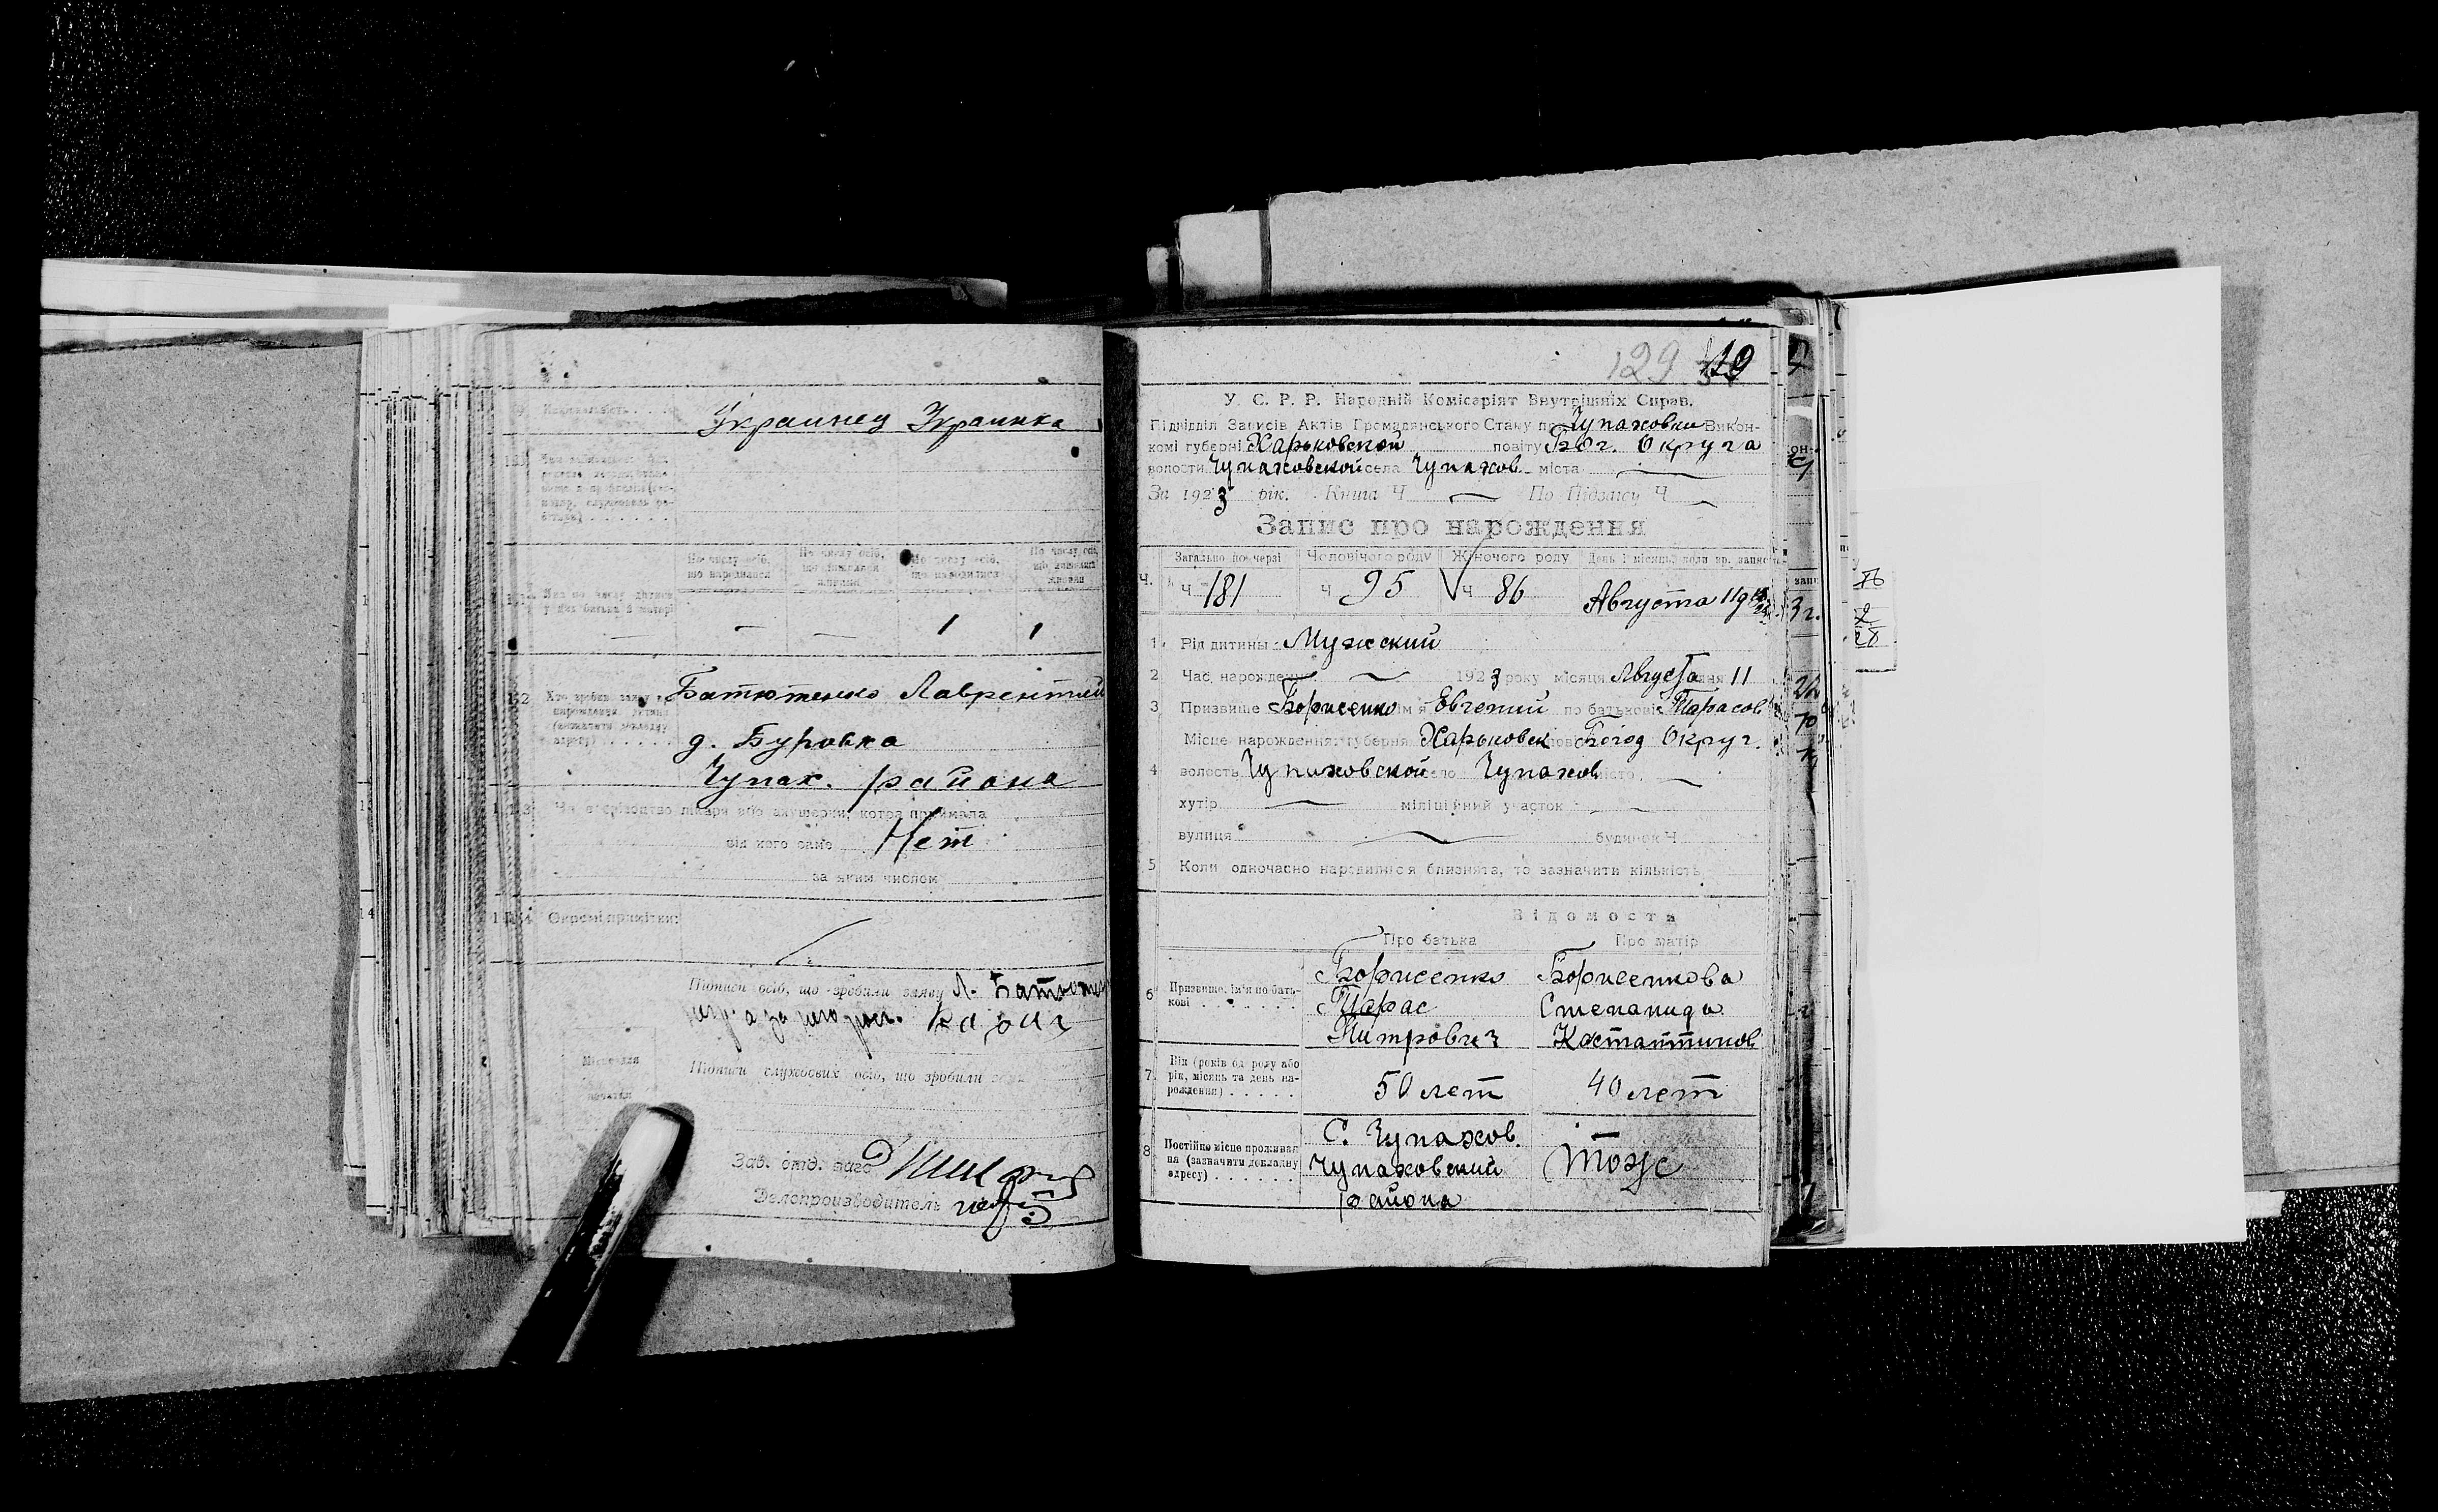 9 Національність . . . .
Украинец Украинка
По числу осіб, що народилися
По числу осіб, що лишилися живими
По числу осіб, що народилися
Яка по числу дитина у цих батька й матері
— — — 1 1
12 Хто зробив заяву про народження дитини (зазначити докладну адресу) . . . . .
Батютенко Лаврентий
д. Буровка
Чупах. района
13 Чи є свідоцтво лікаря або акушерки, котра приймала
від кого саме Нет
за яким числом
14 Окремі примітки:
Підписи осіб, що зробили заяву Л. Батютен
Місце для печатки
Підписи службових осіб, що зробили
Зав. отд. загс
Делопроизводитель
129 119
У. С. Р. Р. Народній Комісаріят Внутрішніх Справ.
Підвідділ Записів Актів Громадянського Стану при Чупаховки Викон-
комі губерні Харьковской повіту Бог. Округа
волости Чупаховской села Чупахов. міста —
За 1923 рік. Книга Ч — По Підзапису Ч —
Запис про народження
Загально по черзі Чоловічого роду Жіночого роду День і місяць, коли вр. запис
Ч. ч 181 ч 95 ч 86 Августа 11
1 Рід дитини Мужский
2 Час народжени — 1923 року місяця Августа дня 11
3 Призвище Борисенко ім'я Евгений по батькові Тарасов
Місце народження: губерня Харьковск пов Богод Округ.
4 волость Чупиховской село Чупахов місто —
хутір — міліційний участок —
вулиця — будинок Ч
5 Коли одночасно народилися близнята, то зазначити кількість
Відомости
Про батька Про матір
6 Призвище, ім'я по бать-
кові . . . . . .
Борисенко Борисенкова
Тарас Степанида
Митрович Костантинов
7 Вік (років од роду або
рік, місяць та день на-
родження) . . . . .
50 лет 40 лет
8 Постійне місце проживан
ня (зазначити докладну
адресу) . . . . . .
С. Чупахов. Тоже
Чупаховский
района